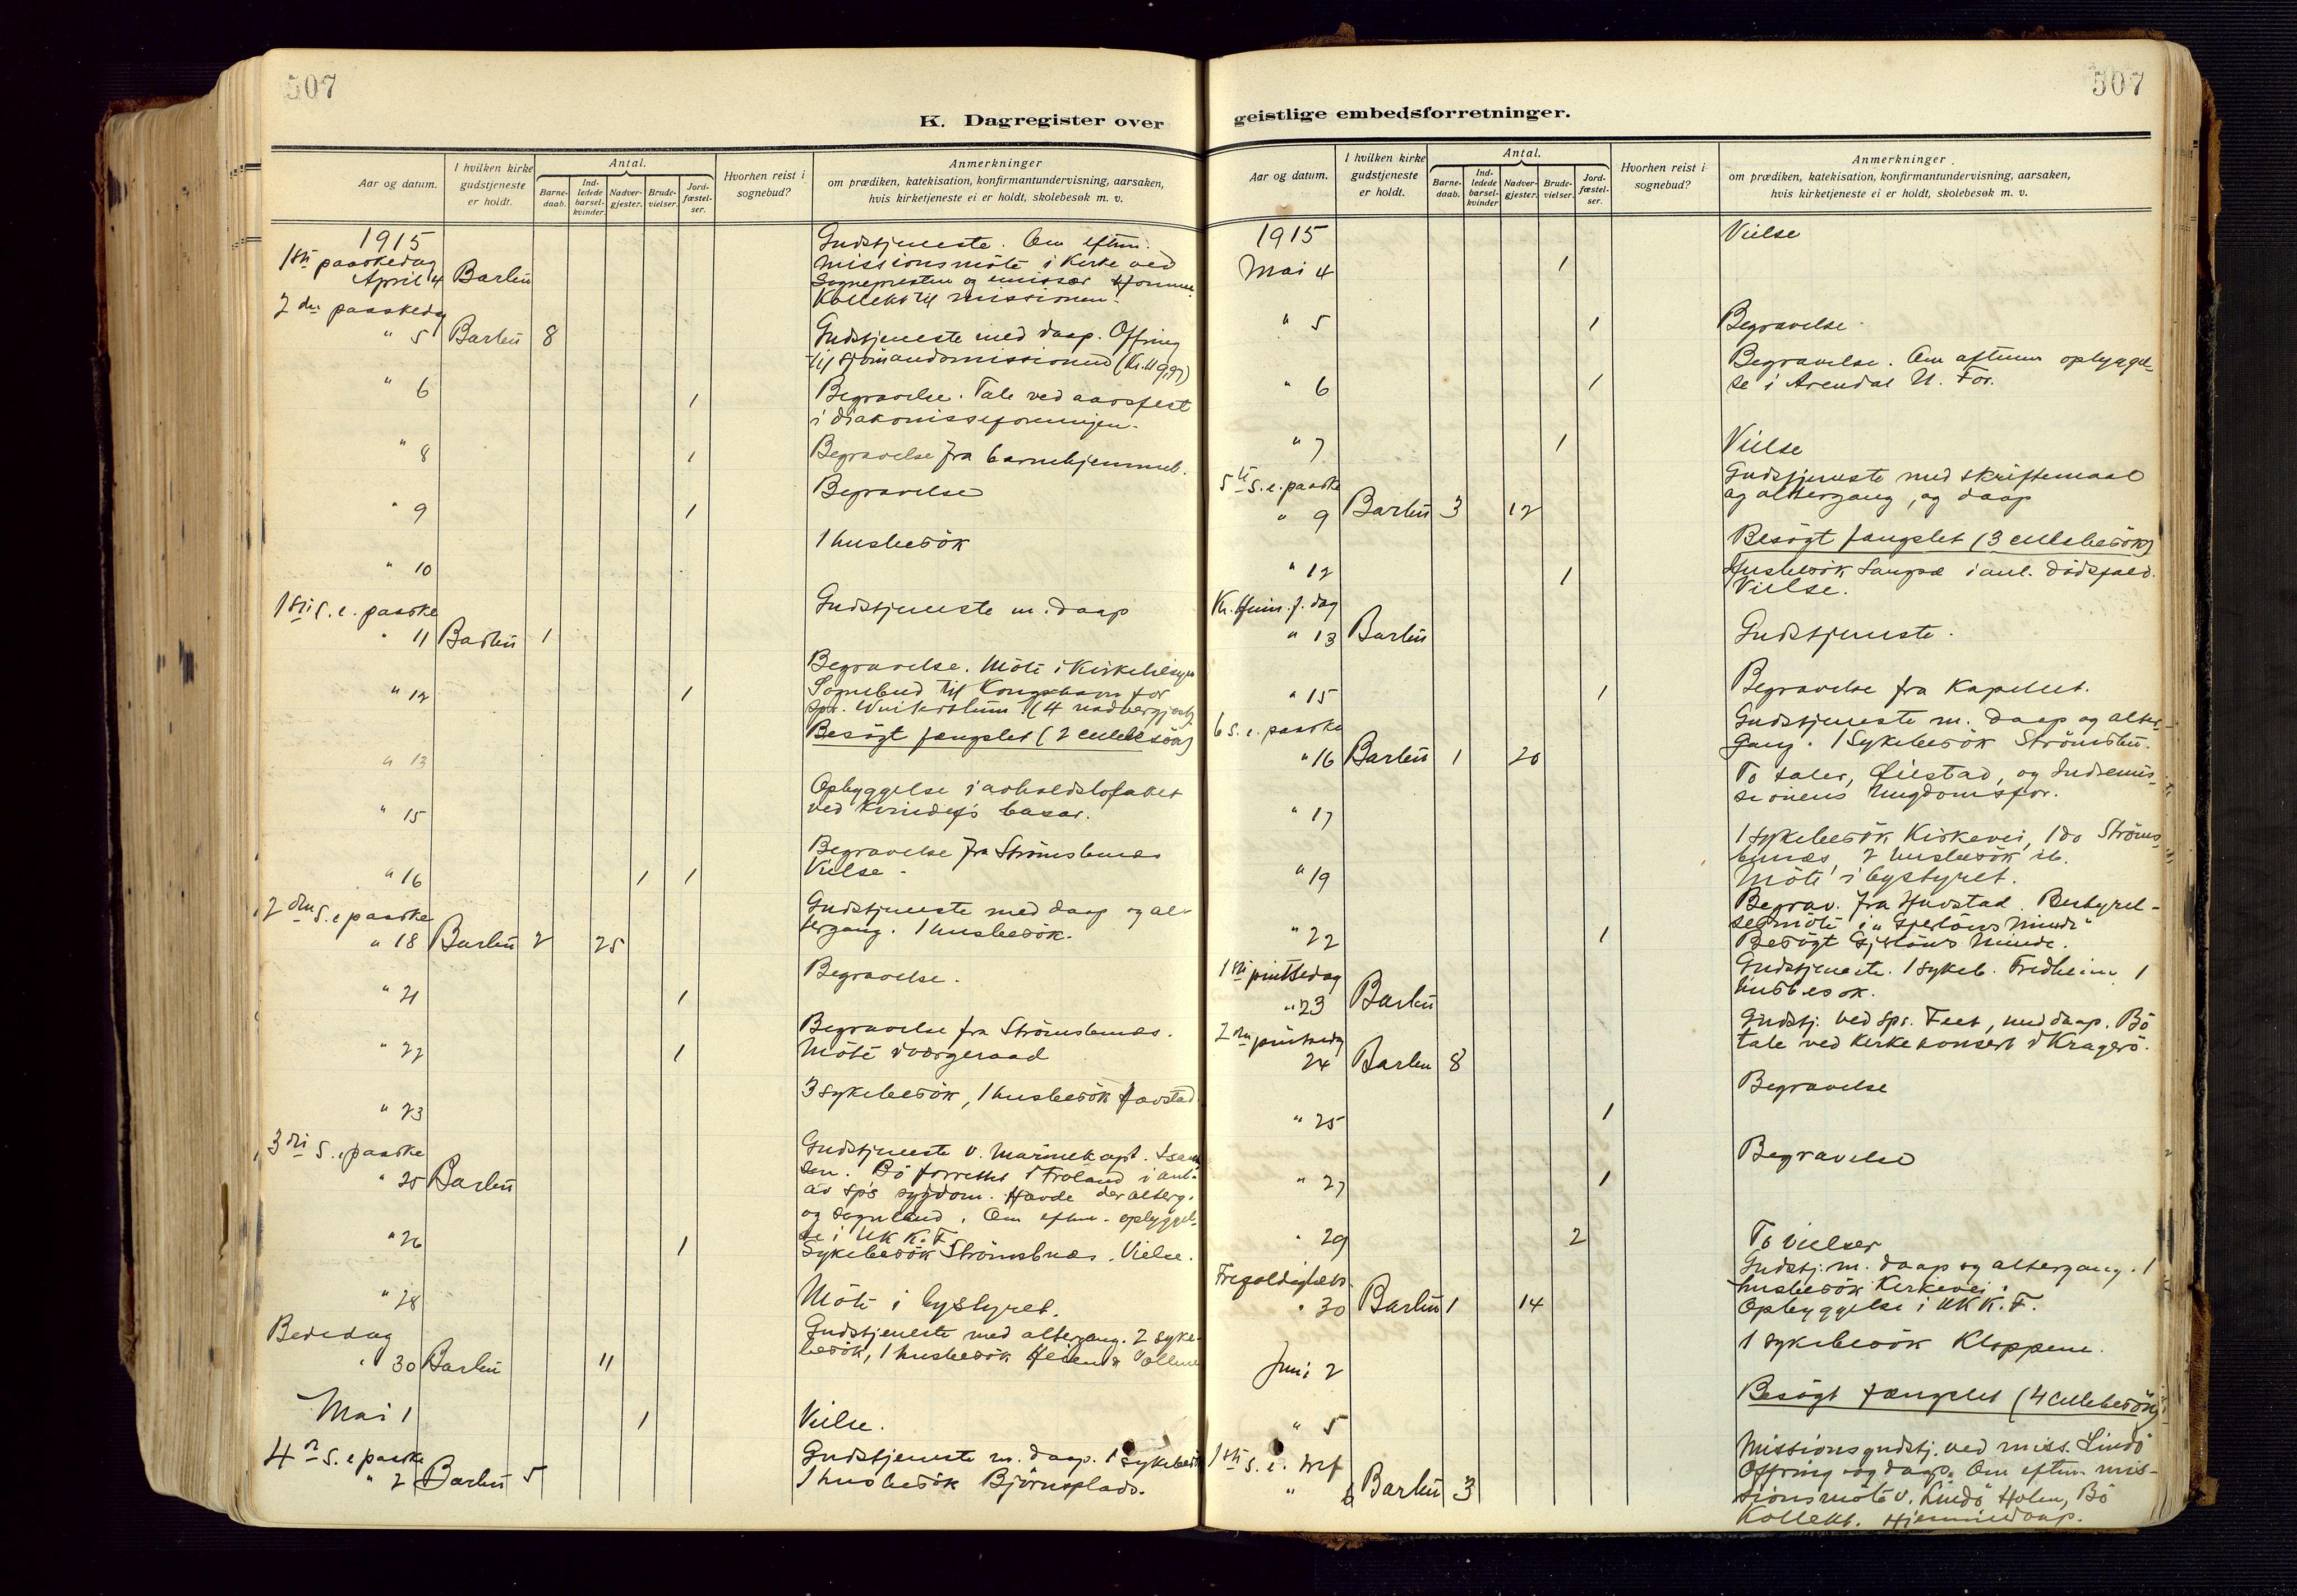 507
K. Dagregister over
Aar og datum.
I hvilken kirke gudstjeneste er holdt.
Antal.
Barne-daab.
Ind-ledede barsel-kvinder.
Nadver-gjester.
Brude-vielser.
Jord-fæstel-ser.
Hvorhen reist i sognebud?
Anmerkninger
om prædiken, katekisation, konfirmantundervisning, aarsaken,
hvis kirketjeneste ei er holdt, skolebesøk m. v.
1915
1ste paaskedag
April 4 Barbu
Gudstjeneste. Om eftm.
missionsmöte i kirke ved
Sognepresten og emissær
Kollekt til missionen.
2den paaskedag
" 5 Barbu 8
Gudstjeneste med daap. Offring
til sjömandsmissionen (Kr.
" 6 1
Begravelse. Tale ved aarsfest
i diakonisseforeningen.
" 8 1
Begravelse fra barnehjemmet.
" 9 1
Begravelse
" 10
1 husbesök
1ste s. e. paaske
" 11 Barbu 1
Gudstjeneste m. daap
" 12 1
Begravelse. Möte i Kirketilsyn
Sognebud til Kongshavn for
spr. (4 nadvergjest)
" 13
Besögt fængslet (2 cellebesök)
" 15
Opbyggelse i avholdslokalet
ved Kvindef's basar.
" 16 1 1
Begravelse fra Strömsbunæs
Vielse.
2den s. e. paaske
" 18 Barbu 2 25
Gudstjeneste med daap og al-
tergang. 1 husbesök.
" 21 1
Begravelse.
" 22 1
Begravelse fra Strömsbunæs.
Möte i vergeraad
" 23
3 sykebesök, 1 husbesök Havstad
3die s. e. paaske
" 25 Barbu
Gudstjeneste v. marinekapt.
sen. Bö forrettet i Froland i anl.
av sp's sygdom. Havde der alterg.
og sognebud. Om eftm. opbyggel-
se i UKK.F.
" 26 1
Sykebesök Strömsbunæs. Vielse.
" 28
Möte i bystyret.
Bededag
" 30 Barbu 11
Gudstjeneste med altergang. 2 syke-
besök, 1 husbesök
Mai 1 1
Vielse.
4de s. e. paaske
" 2 Barbu 5
Gudstjeneste m. daap. 1 sykebesök
1 husbesök Björnsplads.
507
geistlige embedsforretninger.
Aar og datum.
I hvilken kirke gudstjeneste er holdt.
Antal.
Barne-daab.
Ind-ledede barsel-kvinder
Nadver-gjester.
Brude-vielser.
Jord-fæstel-ser.
Hvorhen reist i sognebud?
Anmerkninger.
om prædiken, katekisation, konfirmantundervisning, aarsaken,
hvis kirketjeneste ei er holdt, skolebesøk m. v.
1915
Mai 4 1
Vielse
" 5 1
Begravelse.
" 6 1
Begravelse. Om aftenen opbyggel-
se i Arendal U. For.
" 7 1
Vielse
5te s. e. paaske
" 9 Barbu 3 12
Gudstjeneste med skriftemaal
og altergang, og daap
Besögt fængslet (3 cellebesök)
" 12 1
Husbesök Songe i anl. dödsfald.
Vielse.
Kr. Himm. f. dag
" 13 Barbu
Gudstjeneste.
" 15 1
Begravelse fra Kapellet.
6 s. e. paaske
" 16 Barbu 1 20
Gudstjeneste m. daap og alter-
gang. 1 Sykebesök Strömsbu.
" 17
To taler, Øiestad, og Indremis-
sionens Ungdomsfor.
" 19
1 sykebesök Kirkevei, 1 do Ströms-
bunæs, 2 husbesök ib.
Möte i bystyret.
" 22 1
Begrav. fra Havstad. Bestyrel-
sesmöte i "Gjerlöws Minde"
Besögt Gjerlöws Minde.
1ste pintsedag
" 23 Barbu
Gudstjeneste. 1 sykeb. Fredheim 1
husbesök.
2den pintsedag
24 Barbu 8
Gudstj. ved spr. Feet, med daap. Bö
tale ved kirkekonsert i Kragerö.
" 25 1
Begravelse
" 27 1
Begravelse
" 29 2
To vielser
Trefoldigheds.
" 30 Barbu 1 14
Gudstj. m. daap og altergang. 1
husbesök Kirkevei.
Opbyggelse i UKK.F.
Juni 2
1 sykebesök Kloppene.
" 5
Besögt fængslet (4 cellebesök)
1ste s. e. tref
" 6 Barbu 3
Missionsgudstj. ved miss. Lindö
Offring og daap. Om eftm. mis-
sionsmöte v. Lindö, Holen, Bö
Kollekt. Hjemmedaap.